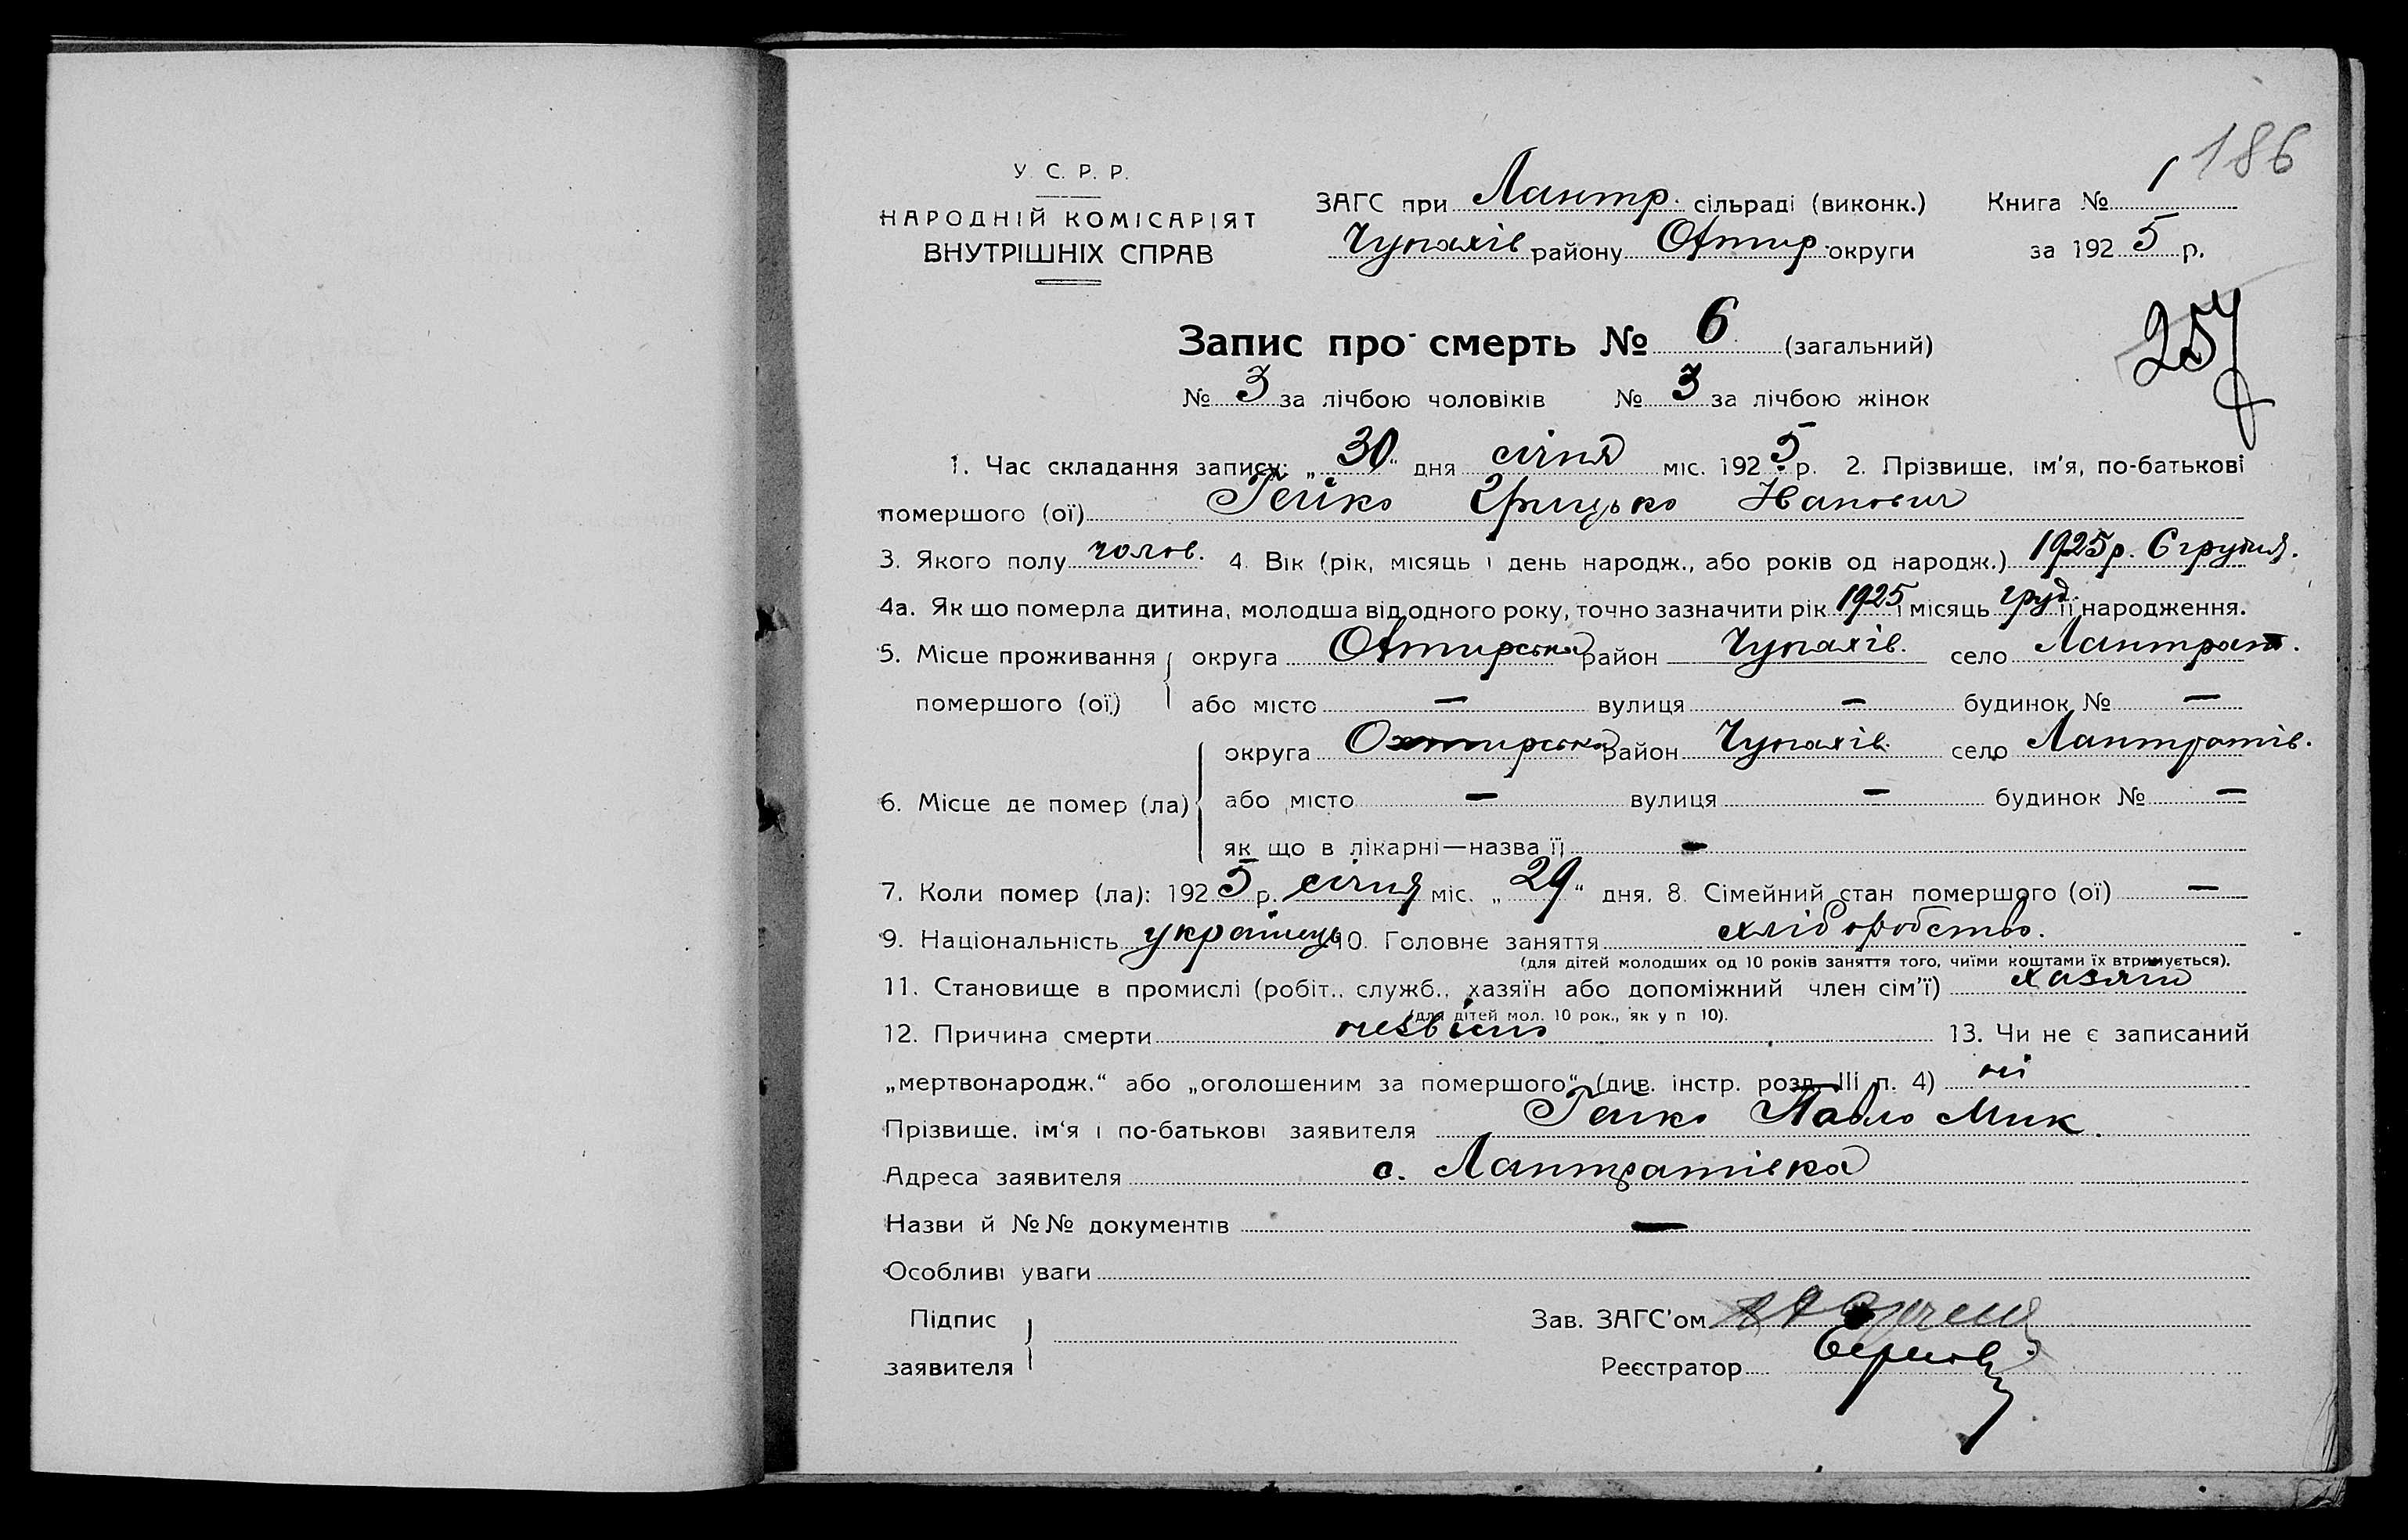 186
У. С. Р. Р.
НАРОДНІЙ КОМІСАРІЯТ
ВНУТРІШНІХ СПРАВ
ЗАГС при Лантр. сільраді (виконк.) Книга № 1
Чупахів району Охтир. округи за 1925 р.
257
Запис про смерть № 6 (загальний)
№ 3 за лічбою чоловіків № 3 за лічбою жінок
1. Час складання запису: „30“ дня січня міс. 1925 р. 2. Прізвище, ім'я, по-батькові
помершого (ої) Гейко Грицько
3. Якого полу чолов. 4. Вік (рік, місяць і день народж., або років од народж.) 1925 р. 6 грудня.
4а. Як що померла дитина, молодша від одного року, точно зазначити рік 1925 і місяць груд. її народження.
5. Місце проживання округа Охтирська район Чупахів. село Лантрат.
помершого (ої) або місто — вулиця — будинок № —
округа Охтирська район Чупахів. село Лантратів.
6. Місце де помер (ла) або місто — вулиця — будинок № —
як що в лікарні—назва її —
7. Коли помер (ла): 1925 р. січня міс. „29“ дня. 8. Сімейний стан помершого (ої) —
9. Національність українець 10. Головне заняття хліборобство.
(для дітей молодших од 10 років заняття того, чиїми коштами їх втримується).
11. Становище в промислі (робіт., служб., хазяїн або допоміжний член сім'ї) хазяїн
(для дітей мол. 10 рок., як у п 10).
12. Причина смерти 13. Чи не є записаний
„мертвонародж.“ або „оголошеним за помершого“ (див. інстр. розд. III п. 4) ні
Прізвище, ім'я і по-батькові заявителя Гейко Павло Мик.
Адреса заявителя с. Лантратівка
Назви й №№ документів —
Особливі уваги
Підпис Зав. ЗАГС'ом
заявителя Реєстратор